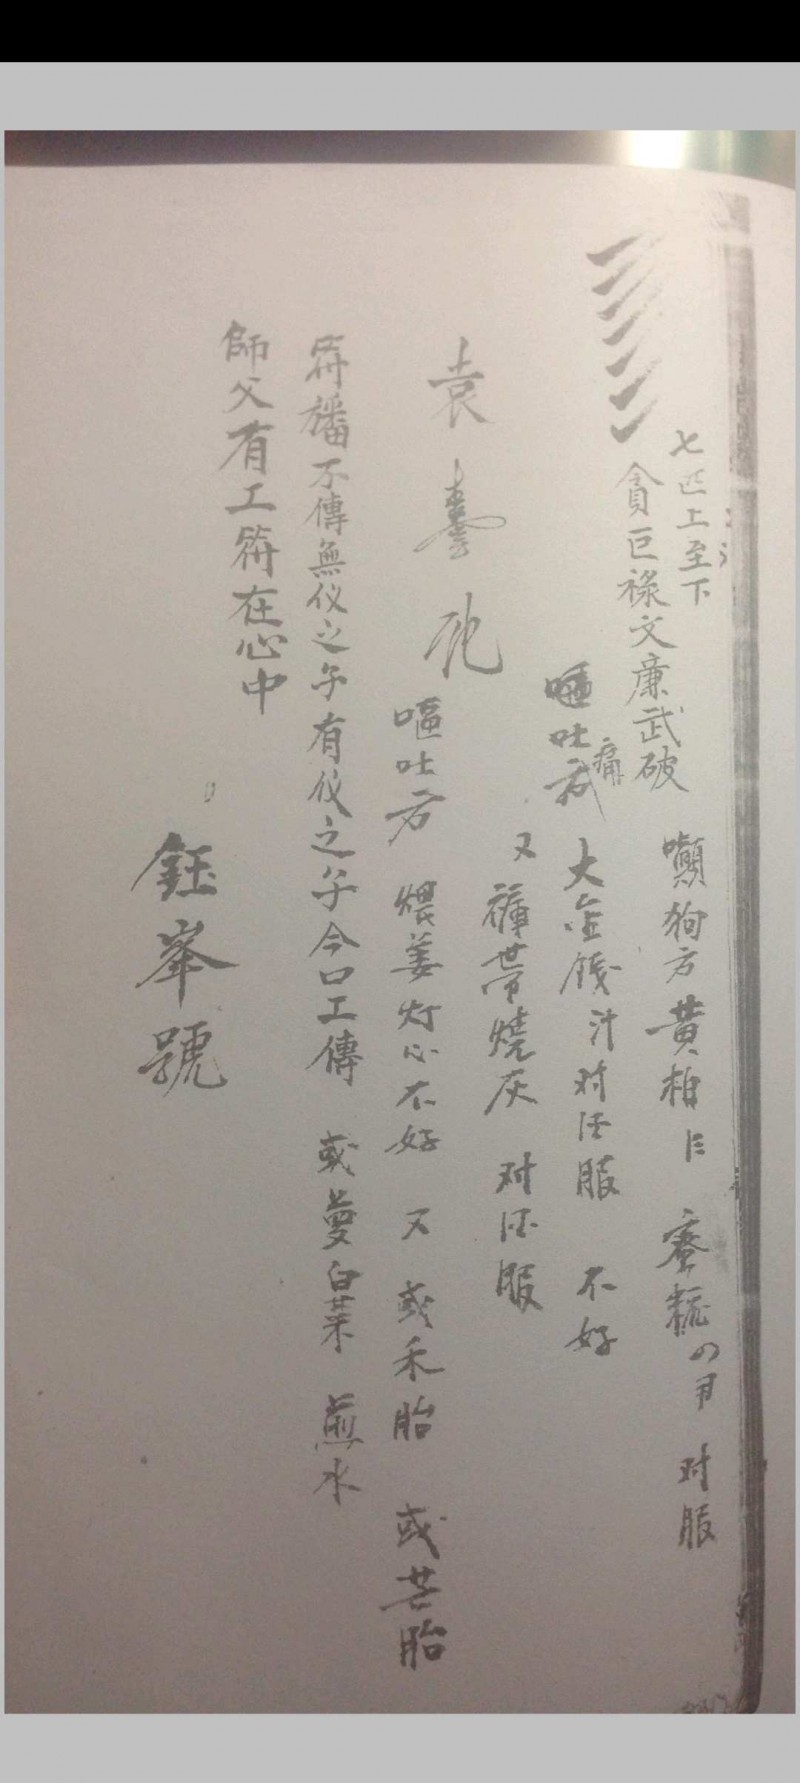 七匹上至下
癲狗方黄柏 蜜 对服
貪巨祿文廉武破
嘔吐 痛 大金錢汁对酒服 不好
又褲帶燒灰 对酒服
袁
嘔吐方 煨姜灯心不好 又或禾胎 或芒胎
符 不傳無仪之子有仪之子今口工傳 或 白菜 煎水
師父有工符在心中
鈺峯號